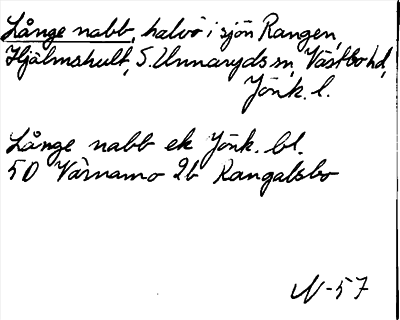 Långe nabb, halvö i sjön Rangen,
Hjälmshult, S. Unnaryds sn, Västbo hd,
Jönk. l.
Långe nabb ek Jönk. bl.
5D Värnamo 2b Rangalsbo
N-57